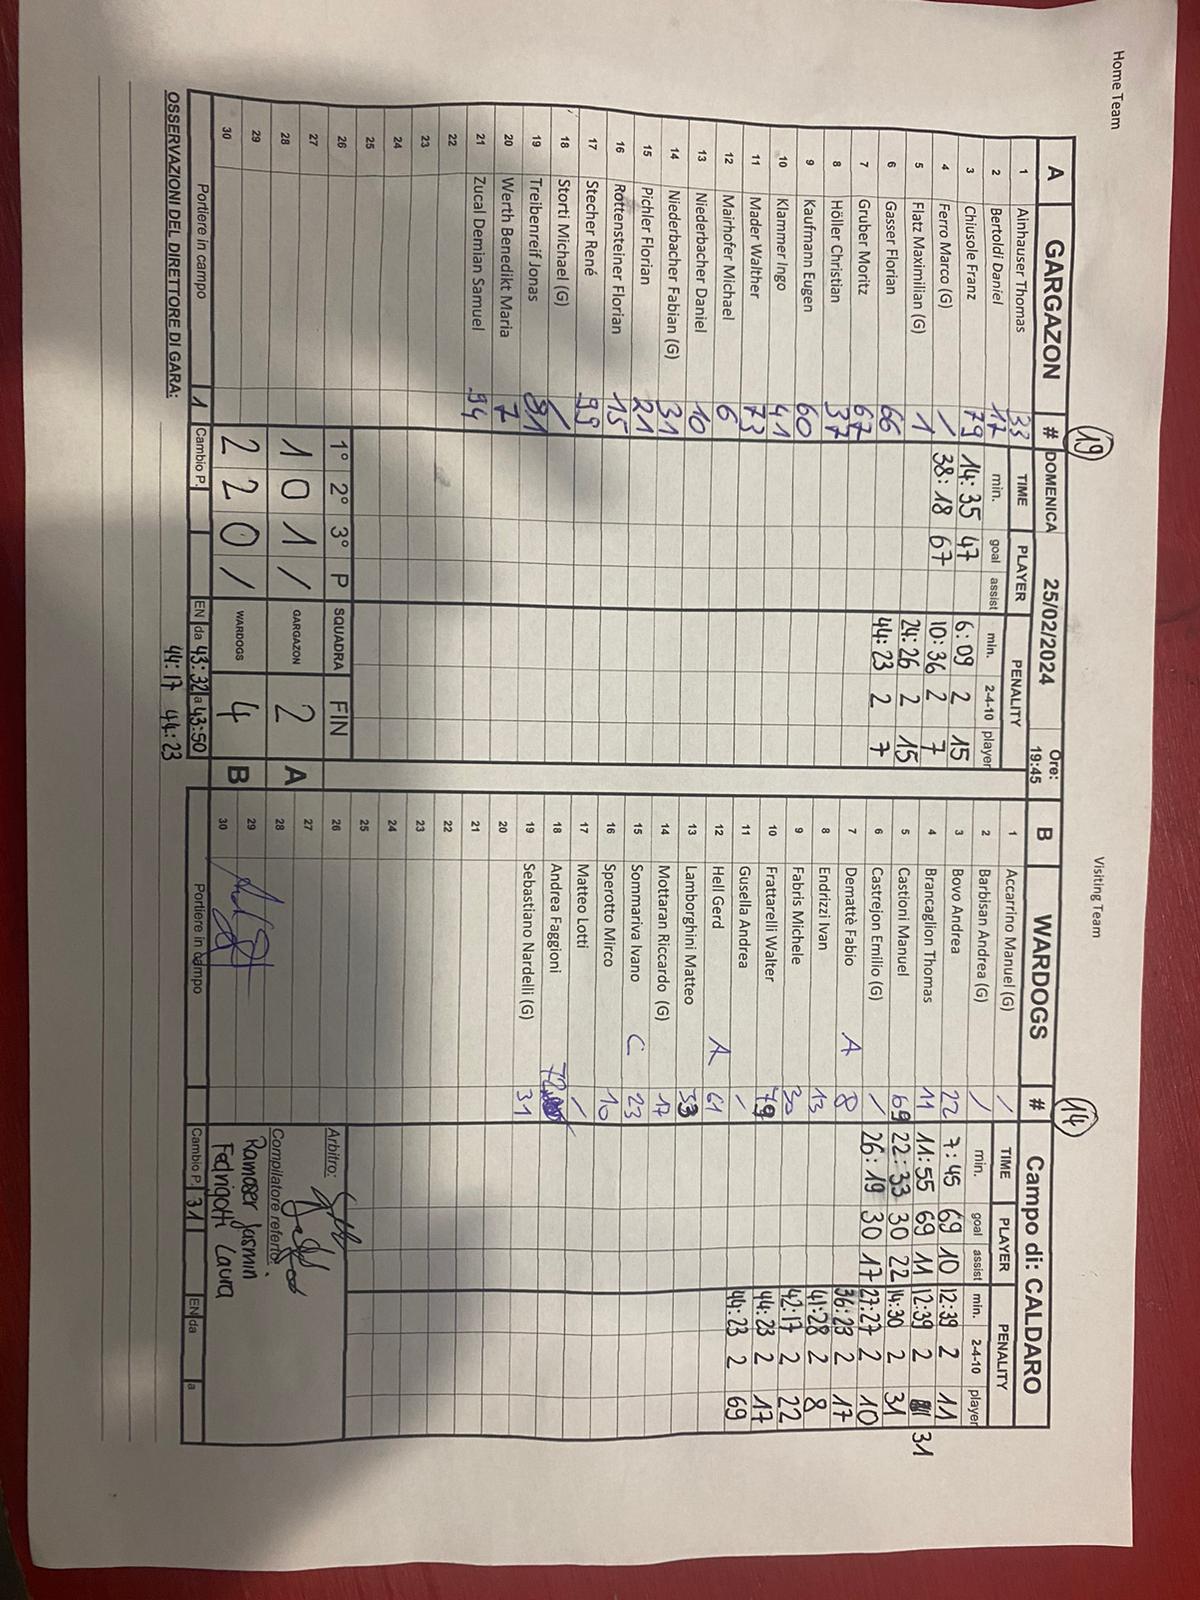 Home Team
Visiting Team
19
14
A GARGAZON # DOMENICA 25/02/2024 Ore: 19:45
TIME PLAYER PENALITY
min. goal assist min. 2-4-10 player
1 Ainhauser Thomas 33
2 Bertoldi Daniel 17
3 Chiusole Franz 79 14:35 47 6:09 2 15
4 Ferro Marco (G) / 38:18 67 10:36 2 7
5 Flatz Maximilian (G) 1 24:26 2 15
6 Gasser Florian 66 44:23 2 7
7 Gruber Moritz 67
8 Höller Christian 37
9 Kaufmann Eugen 60
10 Klammer Ingo 41
11 Mader Walther 73
12 Mairhofer Michael 6
13 Niederbacher Daniel 10
14 Niederbacher Fabian (G) 31
15 Pichler Florian 21
16 Rottensteiner Florian 15
17 Stecher René 99
18 Storti Michael (G) /
19 Treibenreif Jonas 81
20 Werth Benedikt Maria 7
21 Zucal Demian Samuel 94
22
23
24
25
26
27
28
29
30
1° 2° 3° P SQUADRA FIN
1 0 1 / GARGAZON 2 A
2 2 0 / WARDOGS 4 B
Portiere in campo 1 Cambio P. EN da 43:32 a 43:50
44:17 44:23
OSSERVAZIONI DEL DIRETTORE DI GARA:
B WARDOGS # Campo di: CALDARO
TIME PLAYER PENALITY
min. goal assist min. 2-4-10 player
1 Accarrino Manuel (G) /
2 Barbisan Andrea (G) /
3 Bovo Andrea 22 7:45 69 10 12:39 2 11
4 Brancaglion Thomas 11 11:55 69 11 12:39 2 31
5 Castioni Manuel 69 22:33 30 22 14:30 2 31
6 Castrejon Emilio (G) / 26:19 30 17 27:27 2 10
7 Demattè Fabio A 8 36:23 2 17
8 Endrizzi Ivan 13 41:28 2 8
9 Fabris Michele 30 42:17 2 22
10 Frattarelli Walter 79 44:23 2 17
11 Gusella Andrea / 44:23 2 69
12 Hell Gerd A 61
13 Lamborghini Matteo 33
14 Mottaran Riccardo (G) 17
15 Sommariva Ivano C 23
16 Sperotto Mirco 10
17 Matteo Lotti /
18 Andrea Faggioni 72
19 Sebastiano Nardelli (G) 31
20
21
22
23
24
25
26
27
28
29
30
Arbitro:
Compilatore referto:
Ramoser Jasmin
Fedrigotti Laura
Portiere in campo Cambio P. 31 EN da a